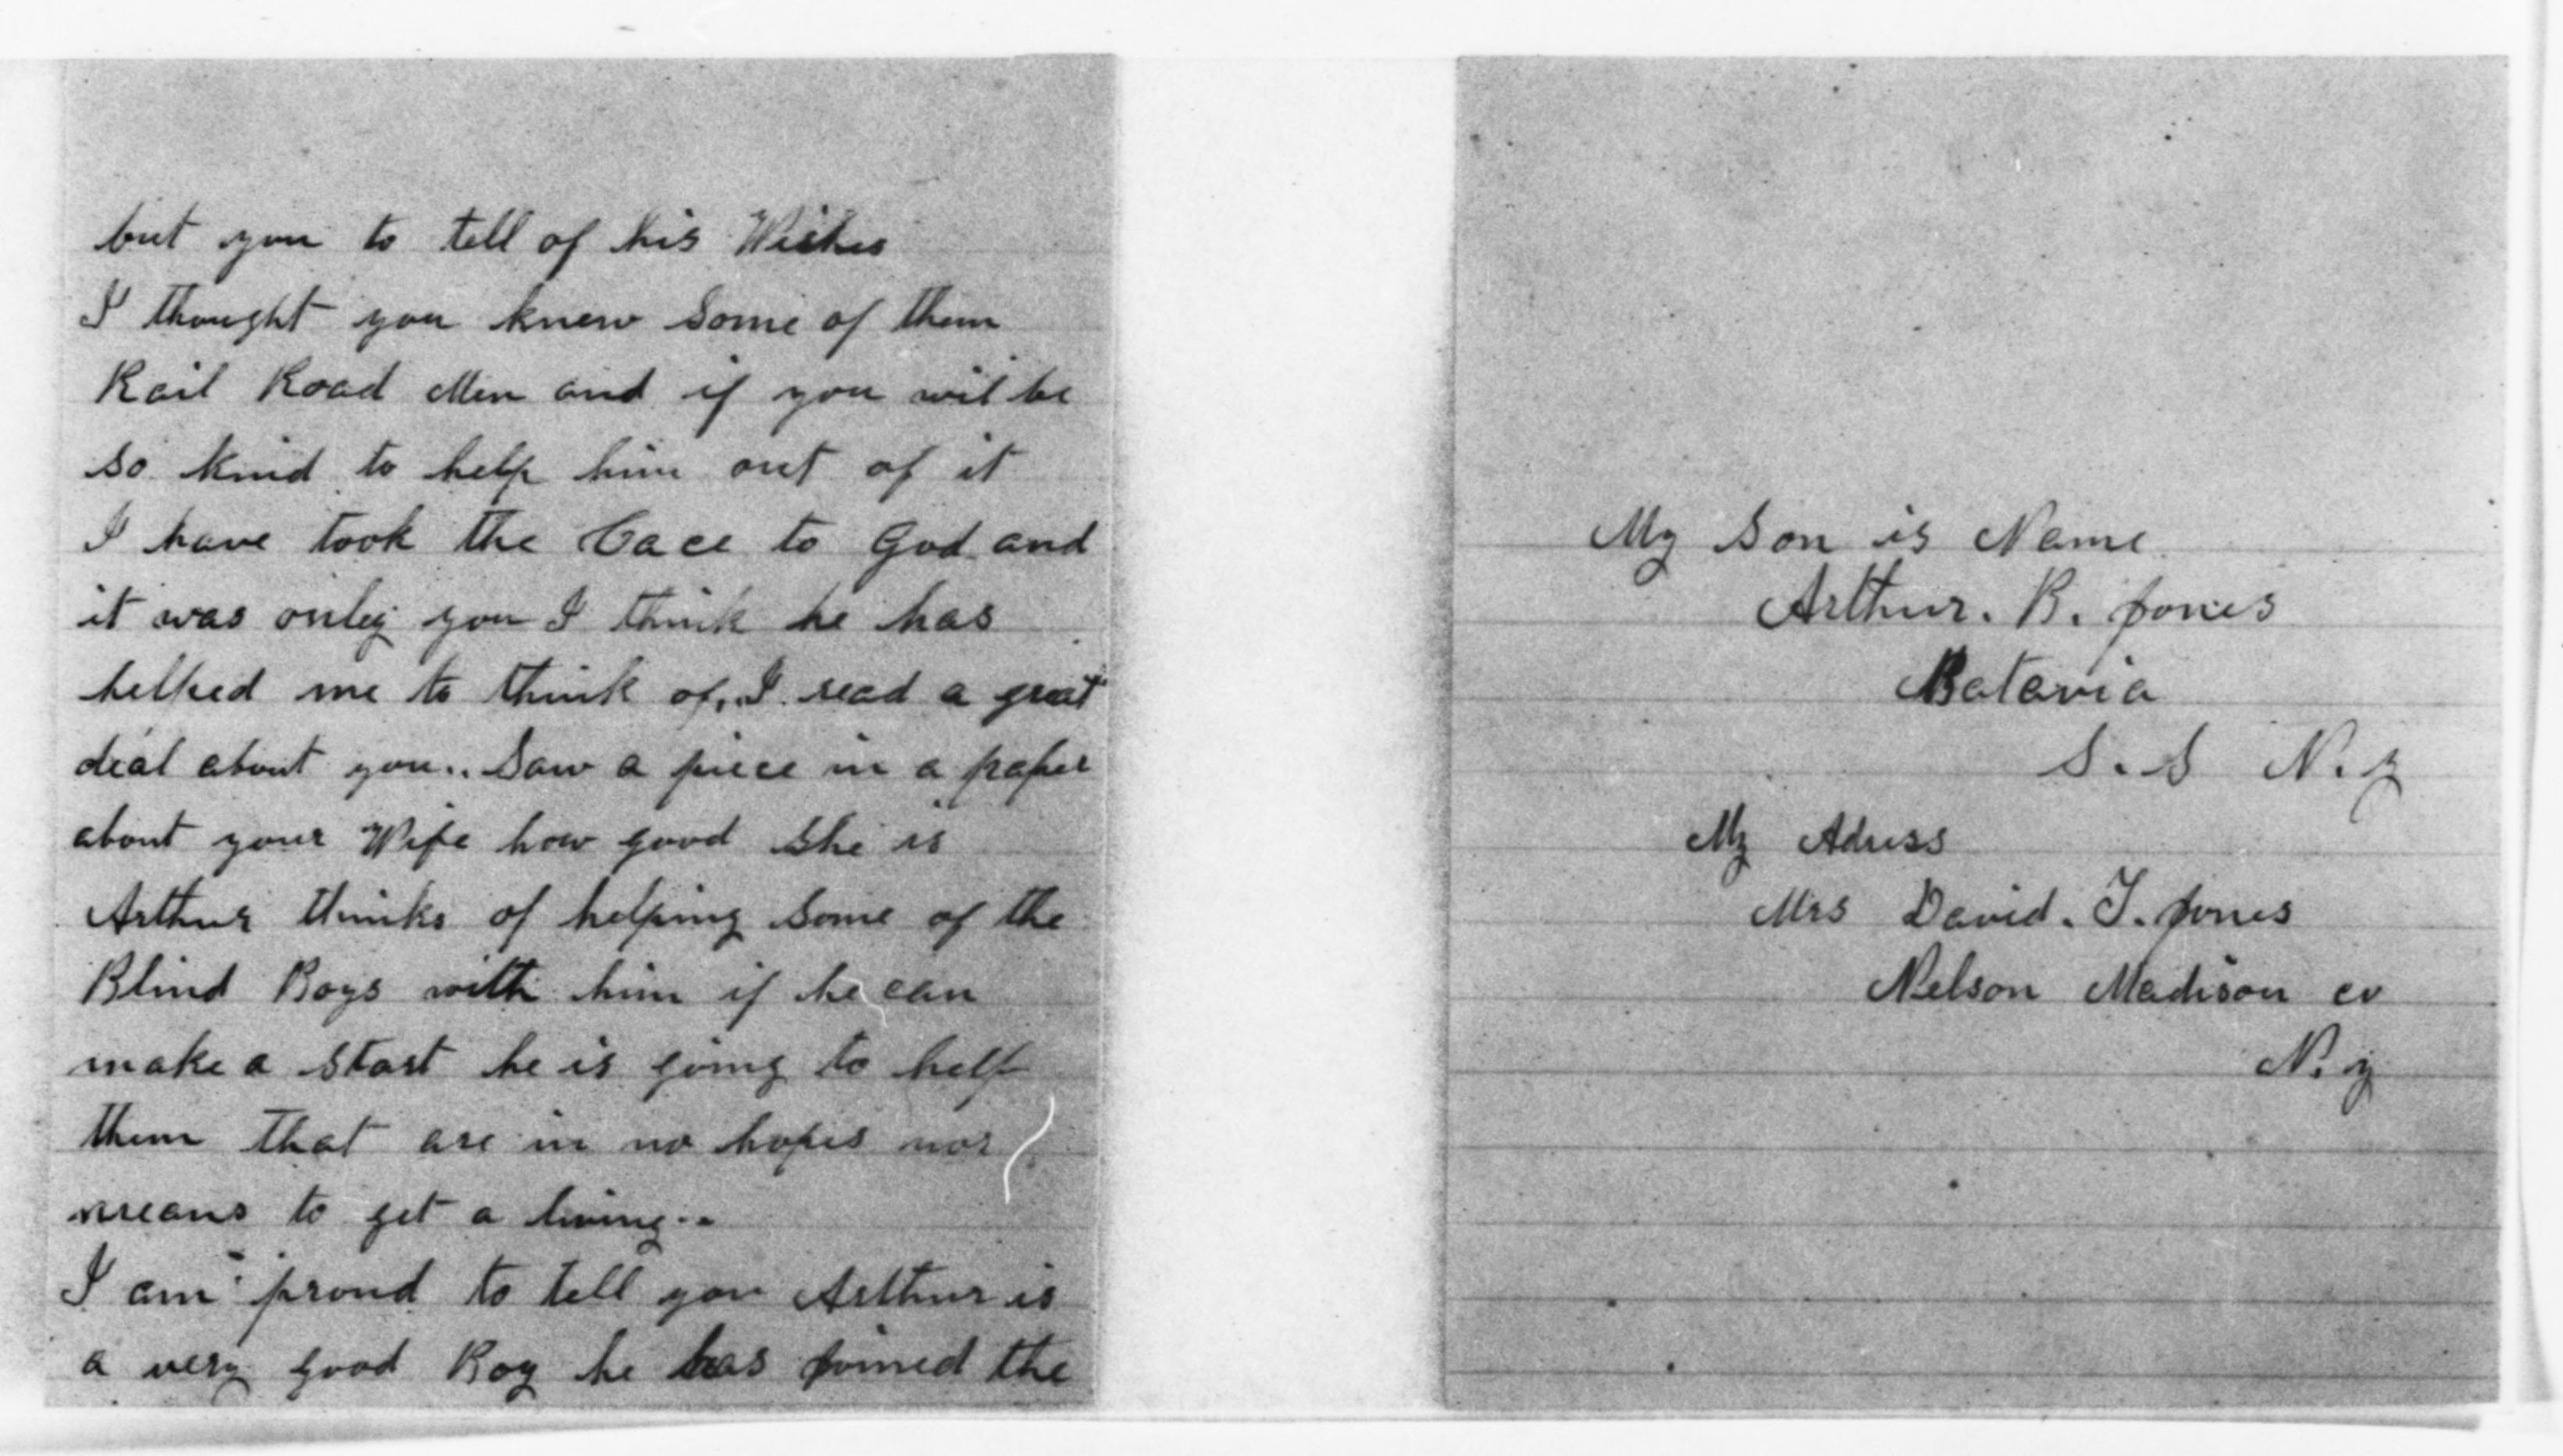 but you to tell of his Wishes
I thought you knew some of them
Rail Road Men and if you wil be
so kind to help him out of it
I have took the Cace to God and
it was onley you I think he has
helked me to think of, I read a great
deal about you.. Saw a piece in a paper
about your Wife how good she is
Arthur thinks of helping some of the
Blind Boys with him if he can
make a start he is going to help
them that are in no hopes nor
means to get a living..
I am proud to tell you Arthur is
a very good Boy he has joined the
My Son is Name
Arthur. B. Jones
Batavia
S. S N. y
My Adress
Mrs David. T. Jones
Nelson Madison co
N. y